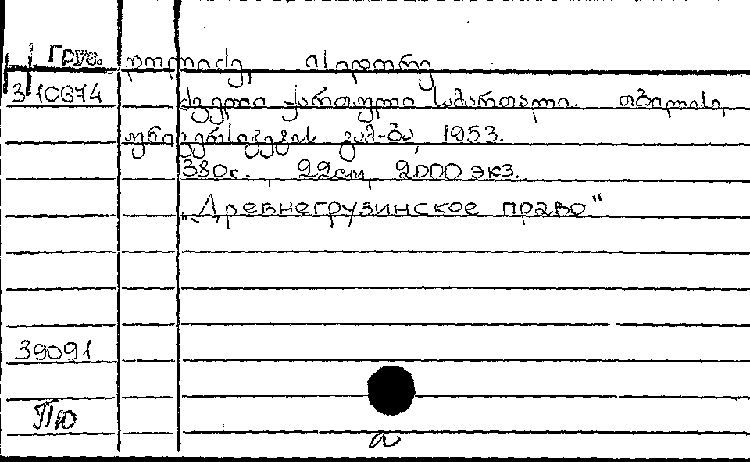 Груз.
დოლიძე, ისიდორე
3 10874
ძველი ქართული სამართალი. თბილისი,
უნივერსიტეტის გამ-ბა, 1953.
380с. 22см, 2000 экз.
„Древнегрузинское право"
39091
Пю